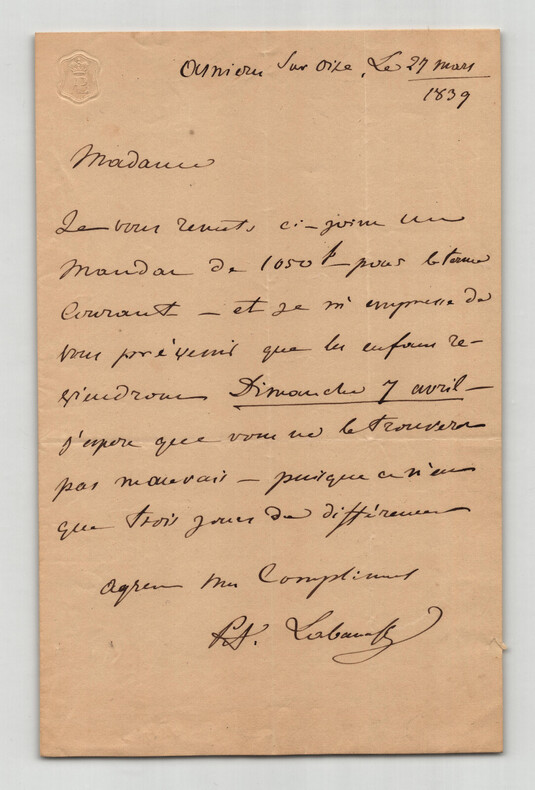 Asnieres sur oize, Le 27 mars
1839
Madame
Je vous remets ci-joint un
Mandat de 1050 f pour le terme
Courant – et je m'empresse de
vous prévenir que les enfans re-
viendront Dimanche 7 avril –
j'espere que vous ne le trouverez
pas mauvais – puisque ce n'est
que trois jours de différence
agreez mes Compliments